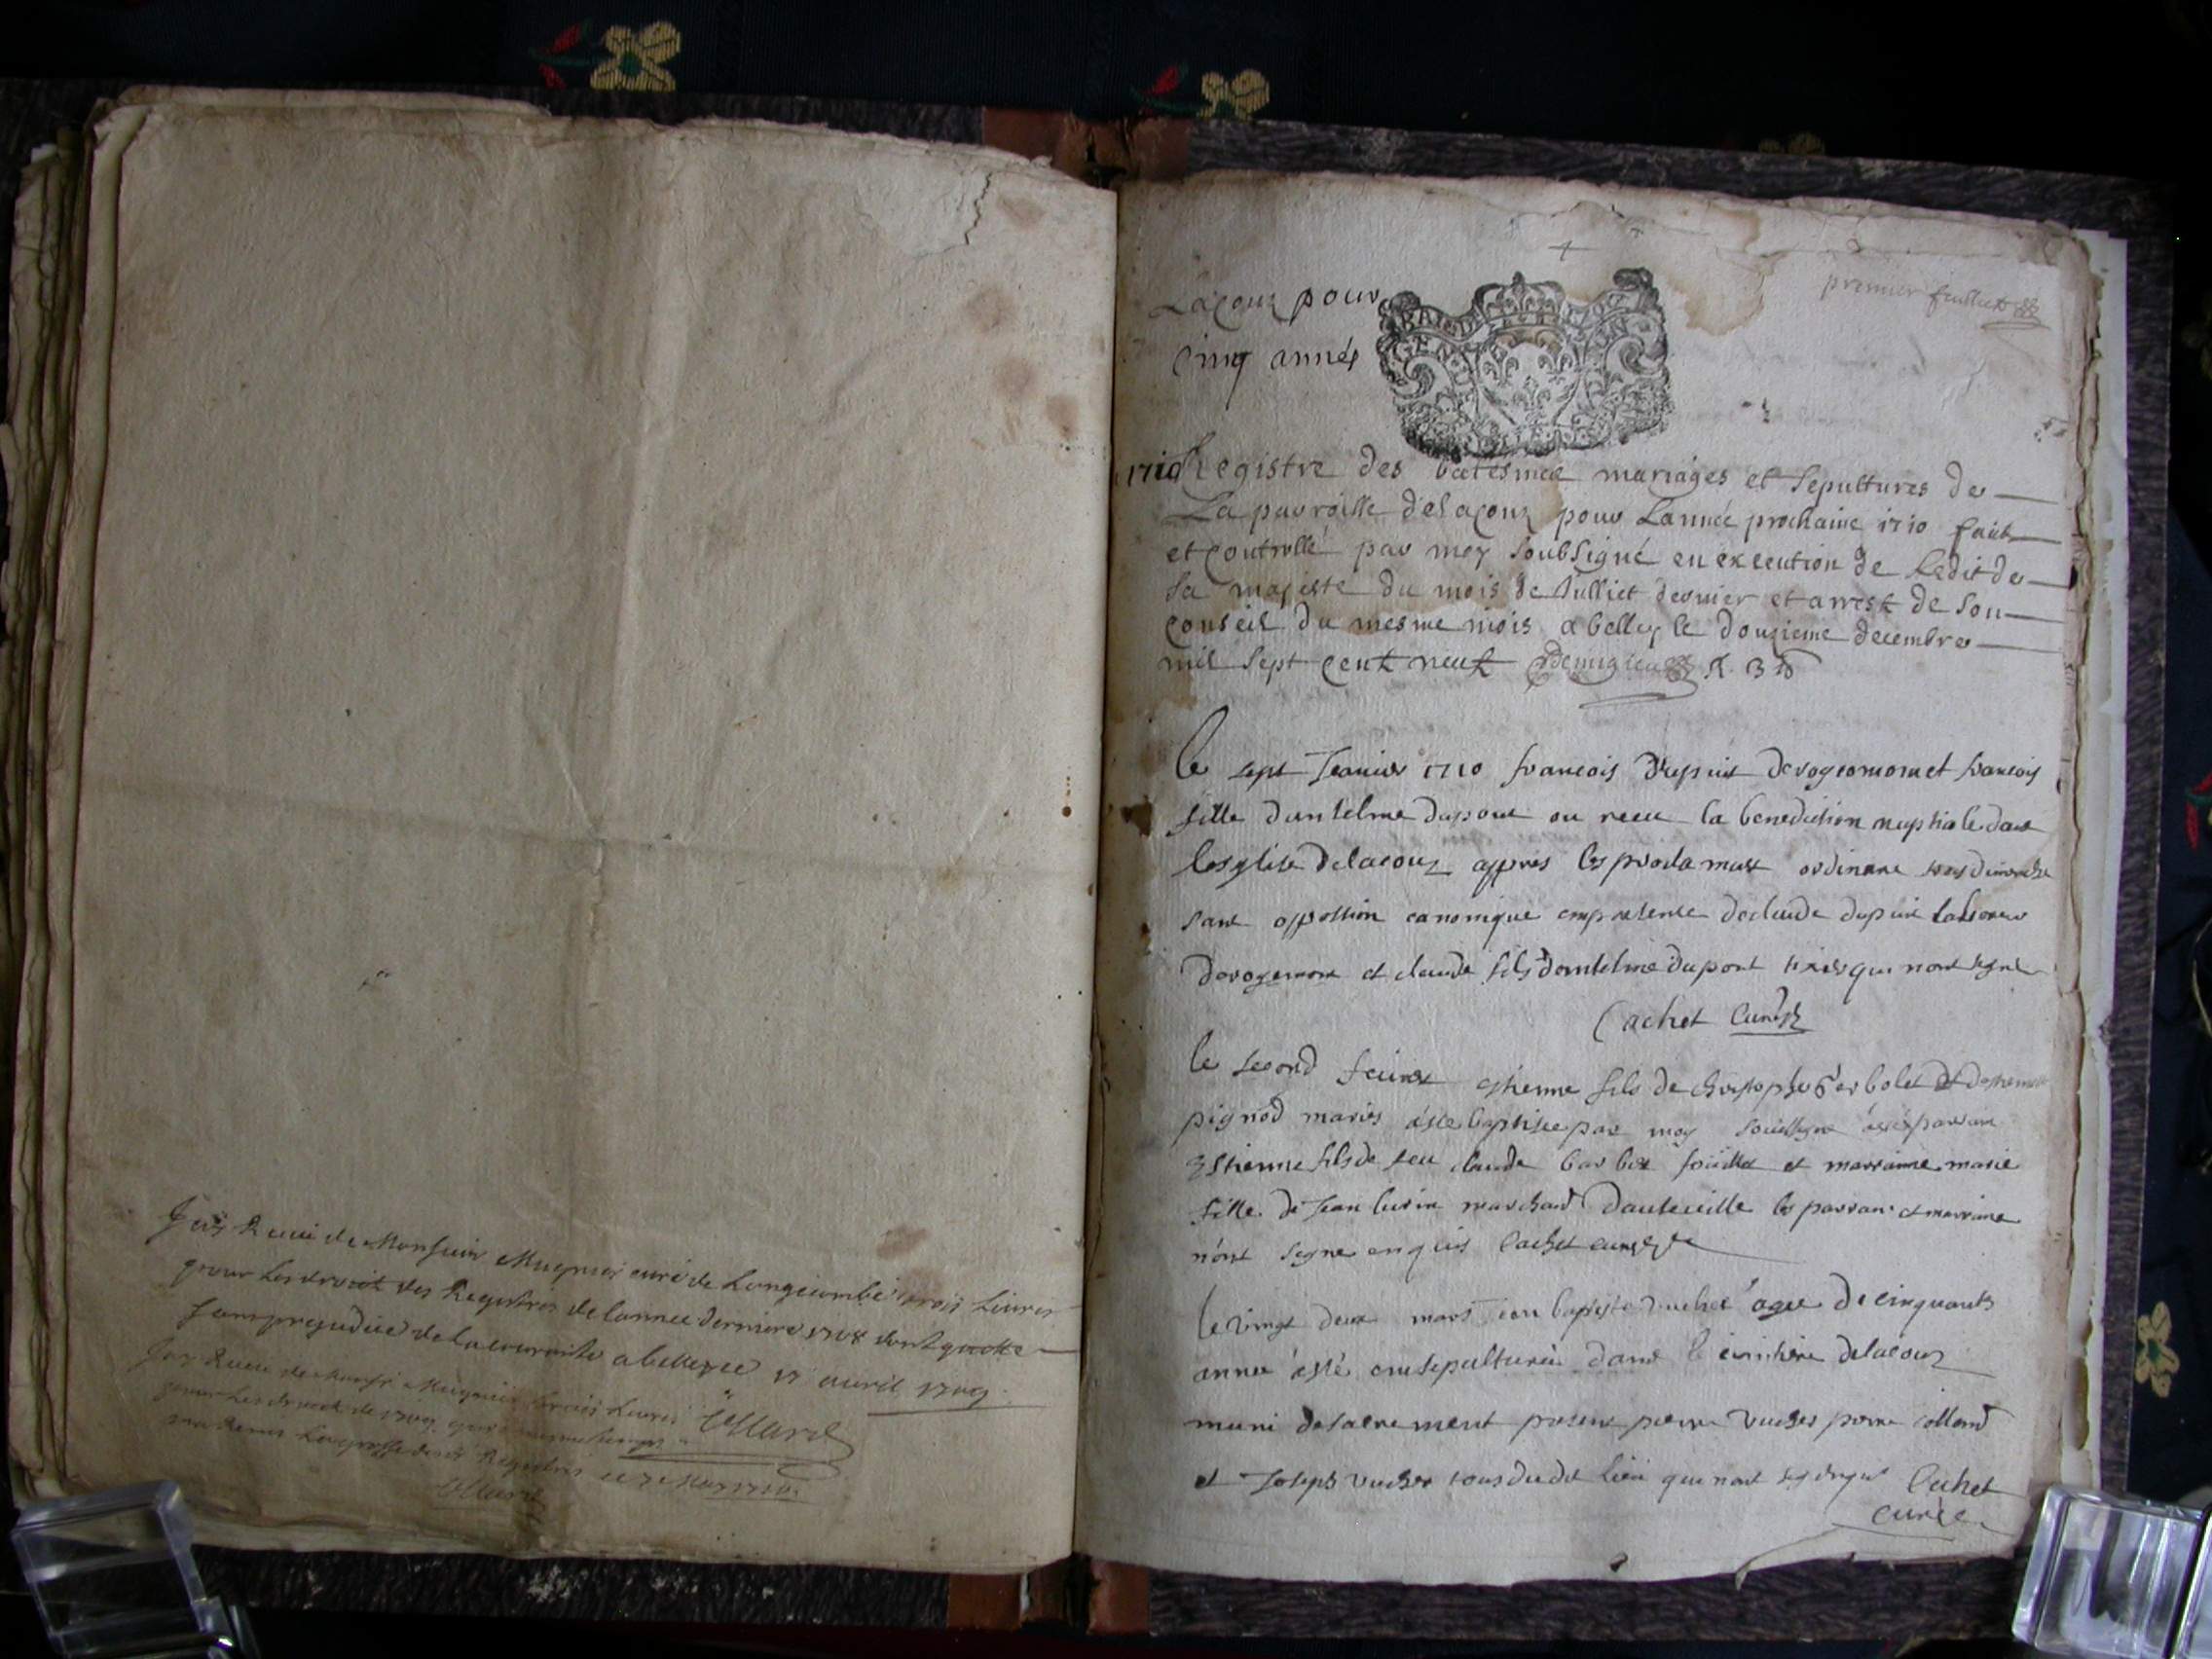 Jay Receu de Monsieur Mugnier curé de Longecombe trois Livres
pour les droit des Registres de lannee derniere 1708 dont quitte
sans prejudice de la courante a belley ce 17 auril 1709
Jay Receu de Monsr Mugnier trois Livres
pour les droit de 1709
Registres ce 7 May 1710
premier feulliet
Lacouz pour
Cinq annés
GEN
1710 Registre des batesmes mariages et sepultures de
La parroisse de Lacouz pour Lannée prochaine 1710 fait
et controllé par moy soubsigné en execution de Ledit de
sa majesté du mois de Julliet dernier et arrest de son
conseil du mesme mois a belley le douzieme decembre
mil sept cent neuf
le sept Januier 1710 francois dupuit de rogemont et francois
fille dantelme dupont on receu la benediction nuptiale dans
lesglise delacouz appres les proclamast ordinere trois dimenche
sans oppossion canonique empresence declaude dupuit
de rogemont et claude fils dantelme dupont tixier qui nont signe
Cachet Curé
le second feurier esthienne fils de christophe berbolet et
pignod mariés a este baptisee par moy soussigne a este parrain
Estienne fils de feu claude barbet et marraine marie
fille de Jean marchand dauteuille les parrain et marraine
n'ont signe enquis Cachet curé
le vingt deux mars jean baptiste vuchet agee de cinquante
année a esté ensepulturée dans le cimitiere delacouz
muni de sacrement presens pierre vucher pierre colland
et Joseph vucher tous dudit lieu qui nont signe Cachet
curée